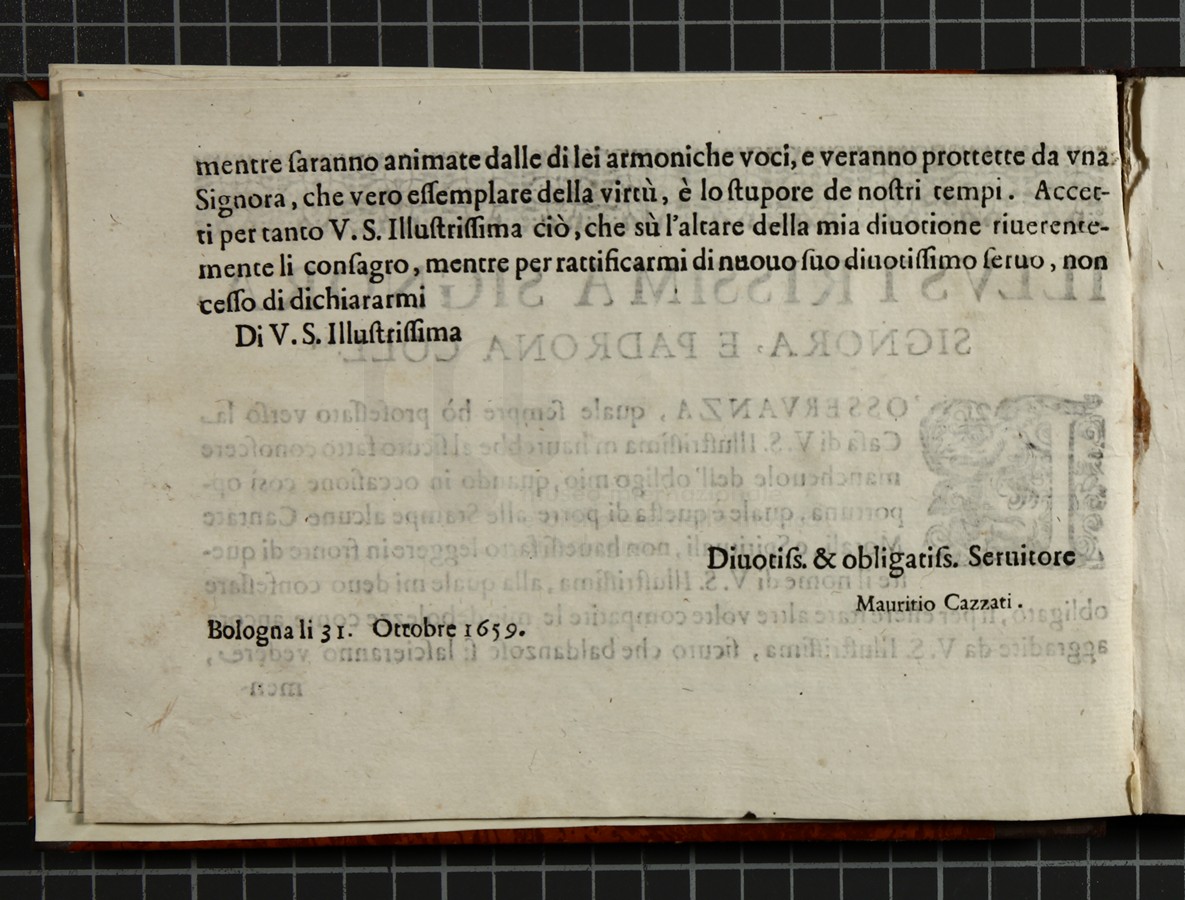 mentre ſaranno animate dalle di lei armoniche voci, e veranno prottette da vna
Signora, che vero eſſemplare della virtù, è lo ſtupore de noſtri tempi. Accet-
ti per tanto V. S. Illuſtriſſima ciò, che sù l'altare della mia diuotione riuerente-
mente li conſagro, mentre per rattificarmi di nuouo ſuo diuotiſſimo ſeruo, non
ceſſo di dichiararmi
Di V. S. Illuſtriſſima
Diuotiſs. & obligatiſs. Seruitore
Mauritio Cazzati.
Bologna li 31. Ottobre 1659.